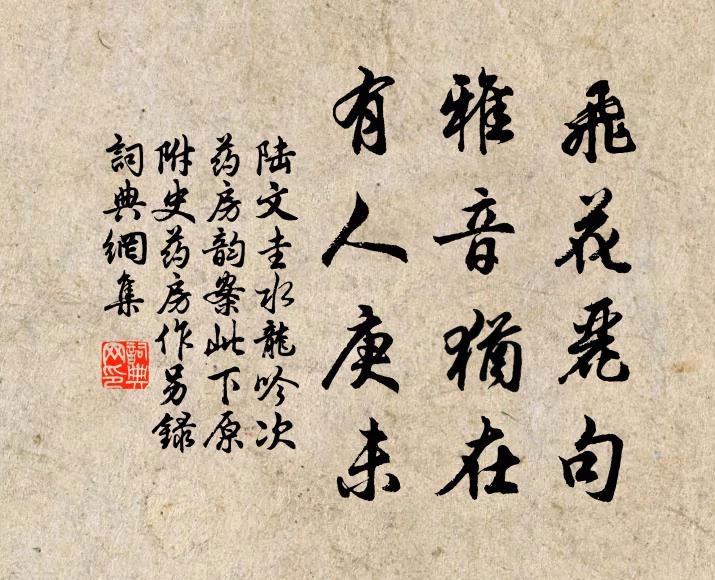 飛花麗句
雅音猶在
有人庚未
陆文圭水龍吟次
药房韵案此下原
附史药房作另録
詞典網集
詞典网印